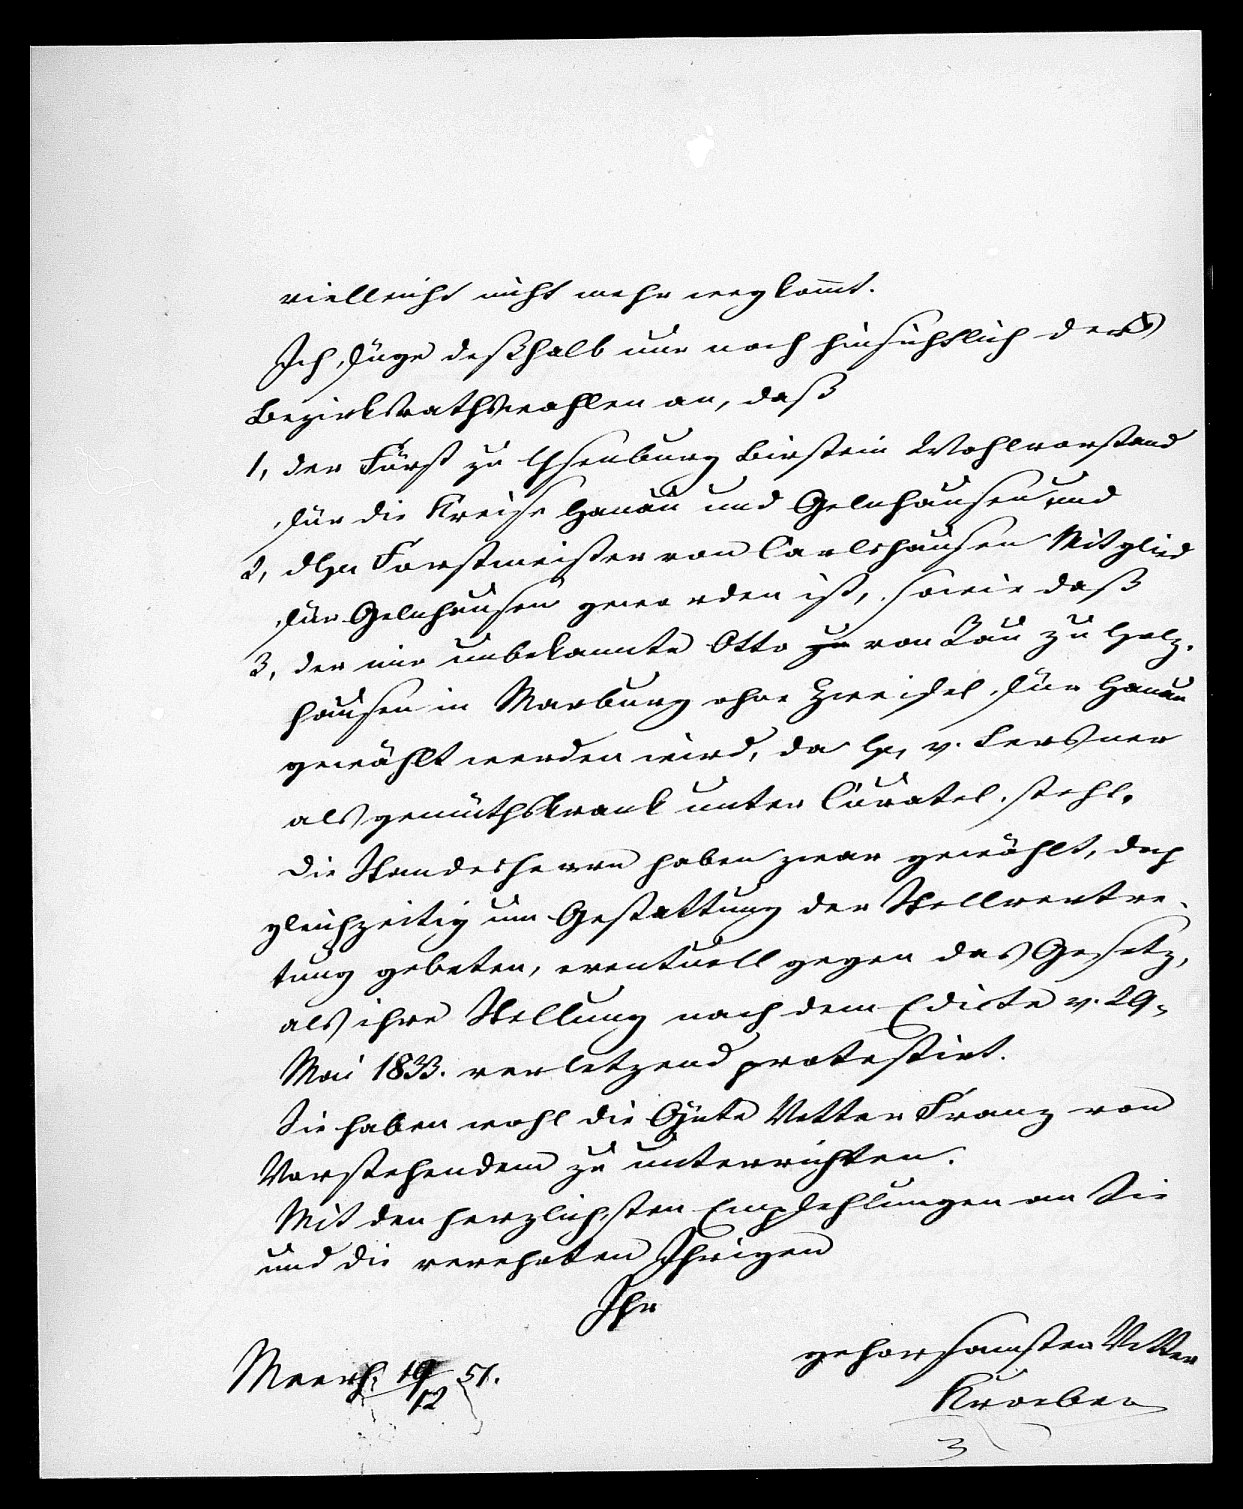 vielleicht nicht mehr wegkommt.
Ich füge deßhalb nur noch hinsichtlich der
Bezirksrathswahlen an, daß
1, der Fürst zu Ysenburg Birstein Wahlvorstand
für die Kreise Hanau und Gelnhausen und
2, Forstmeister von Carlshausen Mitglied
für Gelnhausen geworden ist, sowie daß
3, der mir unbekannte Otto von Rau zu Holz-
hausen in Marburg ohne Zweifel für Hanau
gewählt werden wird, da H. v. Lersner
als gemüthskrank unter Curatel steht.
Die Standesherrn haben zwar gewählt, doch
gleichzeitig um Gestattung der Stellvertre-
tung gebeten, eventuell gegen das Gesetz,
als ihre Stellung nach dem Edicte v. 29.
Mai 1833. verletzend protestirt.
Sie haben wohl die Güte Vetter Franz von
Vorstehendem zu unterrichten.
Mit den herzlichsten Empfehlungen an Sie
und die verehrten Ihrigen
Ihr
gehorsamster Vetter
Meerh. 19/12 51.
Kroeber
3